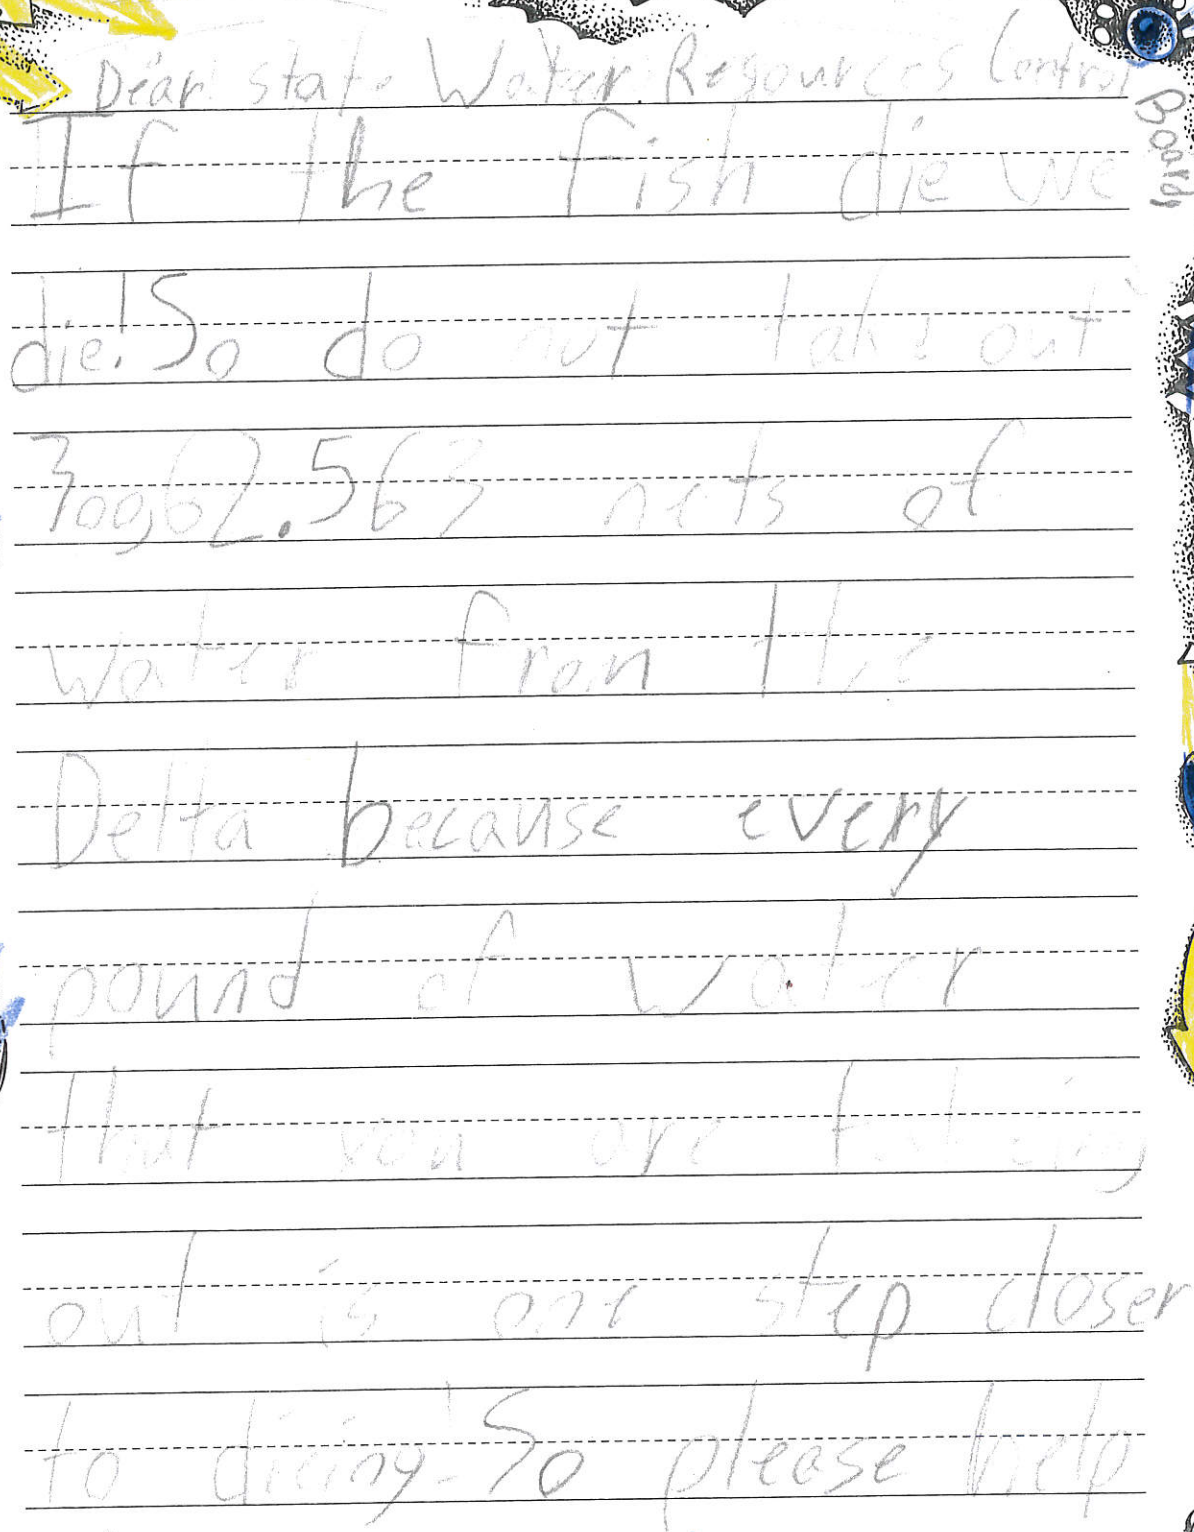 Dear state Water Resources Control Board
If the fish die we
die! So do not take out
300,62.563 nets of
water from the
Delta because every
pound of water
that you are takeing
out is one step closer
to dieing! So please help